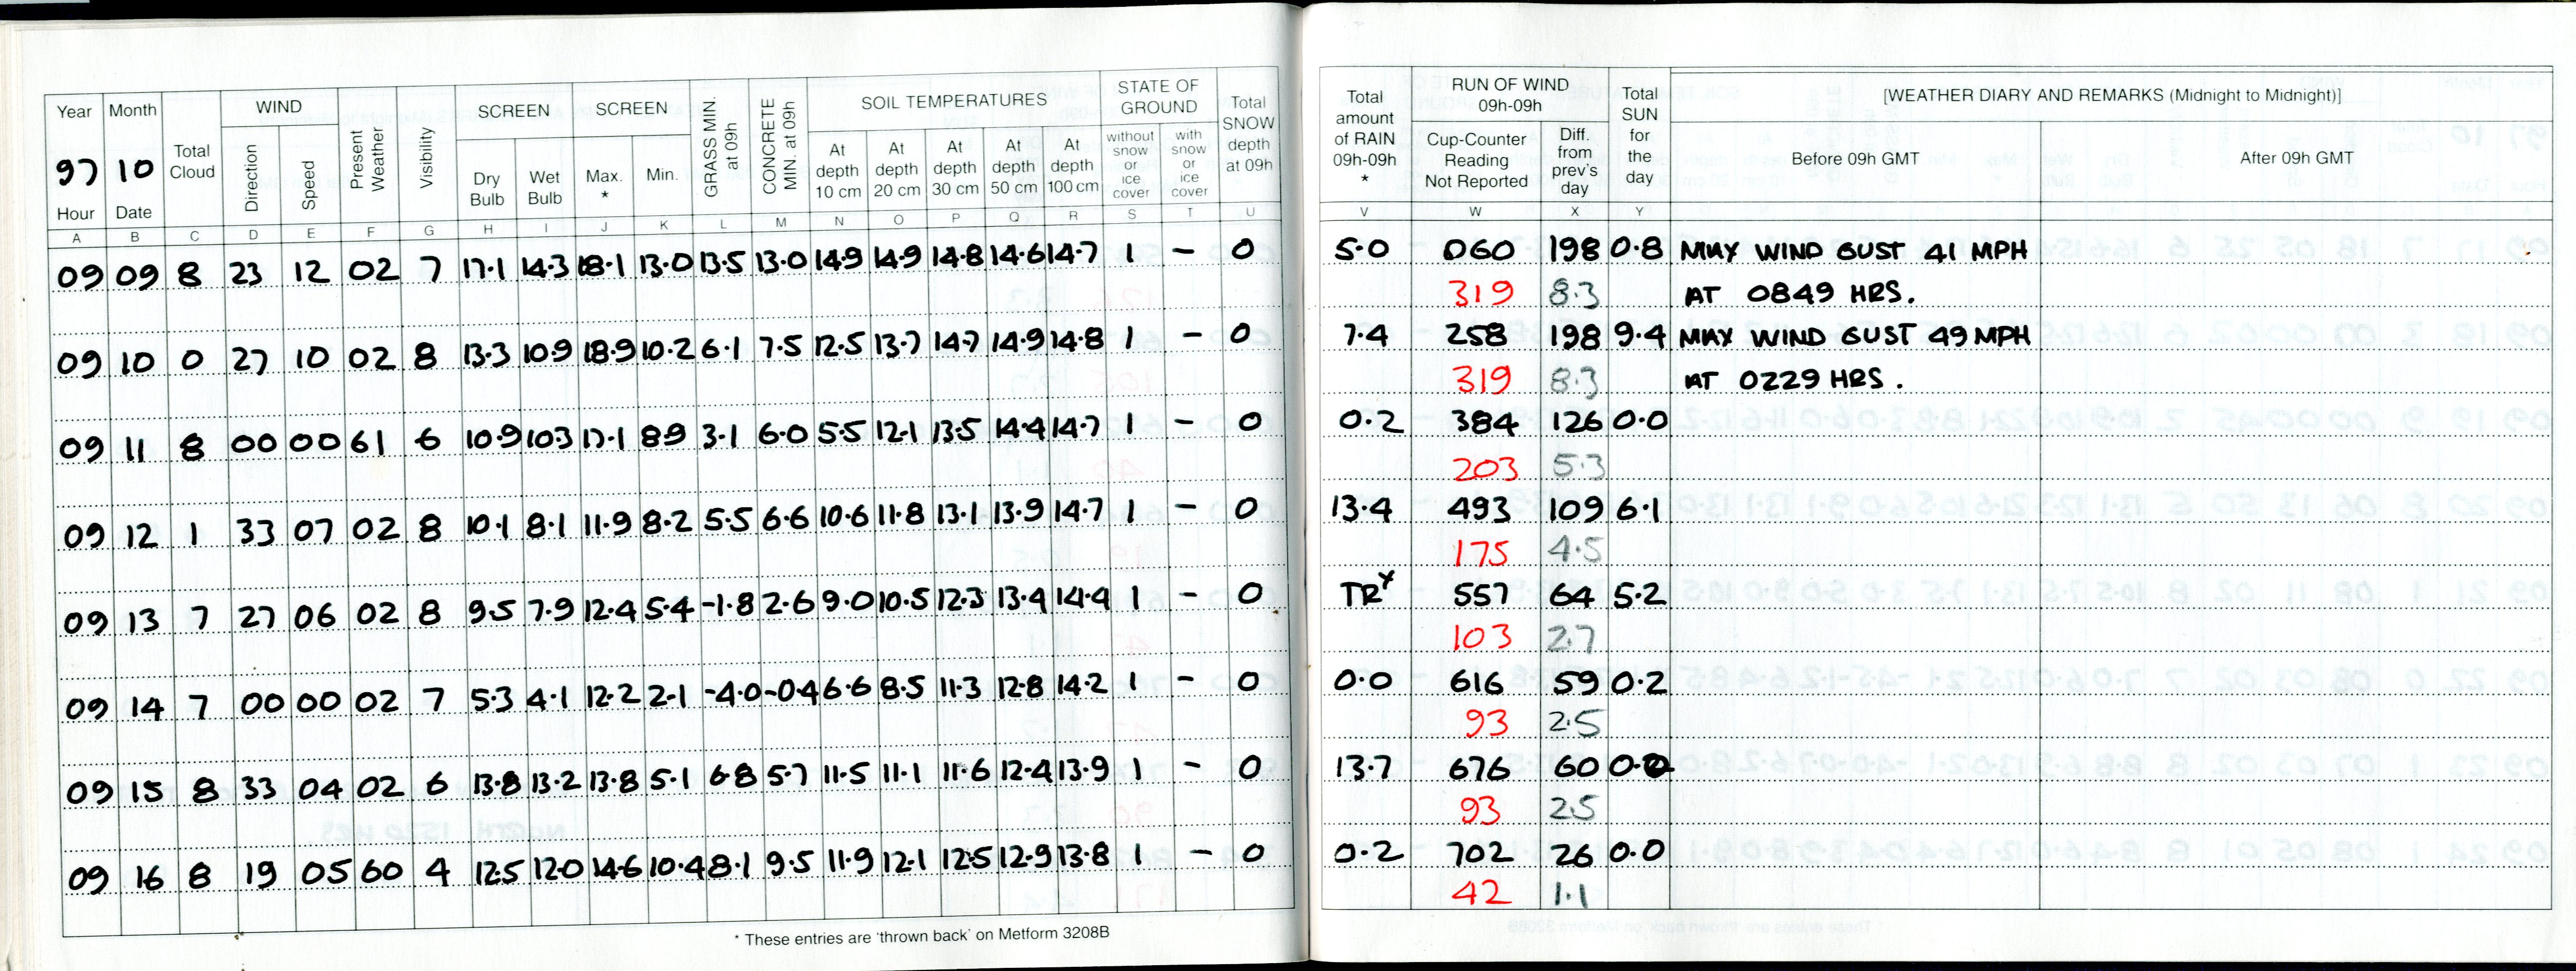 Year Month Total Cloud WIND Present Weather Visibility SCREEN SCREEN GRASS MIN. at 09h CONCRETE MIN. at 09h SOIL TEMPERATURES STATE OF GROUND Total SNOW depth at 09h
97 10 Direction Speed Dry Bulb Wet Bulb Max. * Min. At depth 10 cm At depth 20 cm At depth 30 cm At depth 50 cm At depth 100 cm without snow or ice cover with snow or ice cover
Hour Date
A B C D E F G H I J K L M N O P Q R S T U
09 09 8 23 12 02 7 17.1 14.3 18.1 13.0 13.5 13.0 14.9 14.9 14.8 14.6 14.7 1 - 0
09 10 0 27 10 02 8 13.3 10.9 18.9 10.2 6.1 7.5 12.5 13.7 14.7 14.9 14.8 1 - 0
09 11 8 00 00 61 6 10.9 10.3 17.1 8.9 3.1 6.0 5.5 12.1 13.5 14.4 14.7 1 - 0
09 12 1 33 07 02 8 10.1 8.1 11.9 8.2 5.5 6.6 10.6 11.8 13.1 13.9 14.7 1 - 0
09 13 7 27 06 02 8 9.5 7.9 12.4 5.4 -1.8 2.6 9.0 10.5 12.3 13.4 14.4 1 - 0
09 14 7 00 00 02 7 5.3 4.1 12.2 2.1 -4.0 -0.4 6.6 8.5 11.3 12.8 14.2 1 - 0
09 15 8 33 04 02 6 13.8 13.2 13.8 5.1 6.8 5.7 11.5 11.1 11.6 12.4 13.9 1 - 0
09 16 8 19 05 60 4 12.5 12.0 14.6 10.4 8.1 9.5 11.9 12.1 12.5 12.9 13.8 1 - 0
* These entries are 'thrown back' on Metform 3208B
Total amount of RAIN 09h-09h * RUN OF WIND 09h-09h Total SUN for the day [WEATHER DIARY AND REMARKS (Midnight to Midnight)]
Cup-Counter Reading Not Reported Diff. from prev's day Before 09h GMT After 09h GMT
V W X Y
5.0 060 198 0.8 MAX WIND GUST 41 MPH
319 8.3 AT 0849 HRS.
7.4 258 198 9.4 MAX WIND GUST 49 MPH
319 8.3 AT 0229 HRS.
0.2 384 126 0.0
203 5.3
13.4 493 109 6.1
175 4.5
TR 557 64 5.2
103 2.7
0.0 616 59 0.2
93 2.5
13.7 676 60
93 2.5
0.2 702 26 0.0
42 1.1